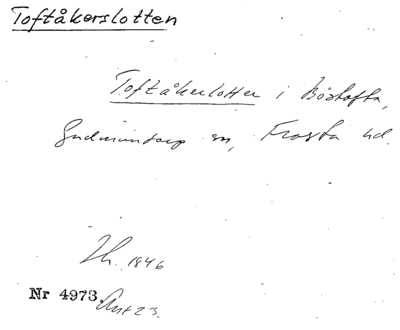 Toftåkerslotten
Toftåkerlotter i Böstofta,
Gudmuntorp sn, Frosta hd.
Lh. 1846
Nr 4973. Ant 23.